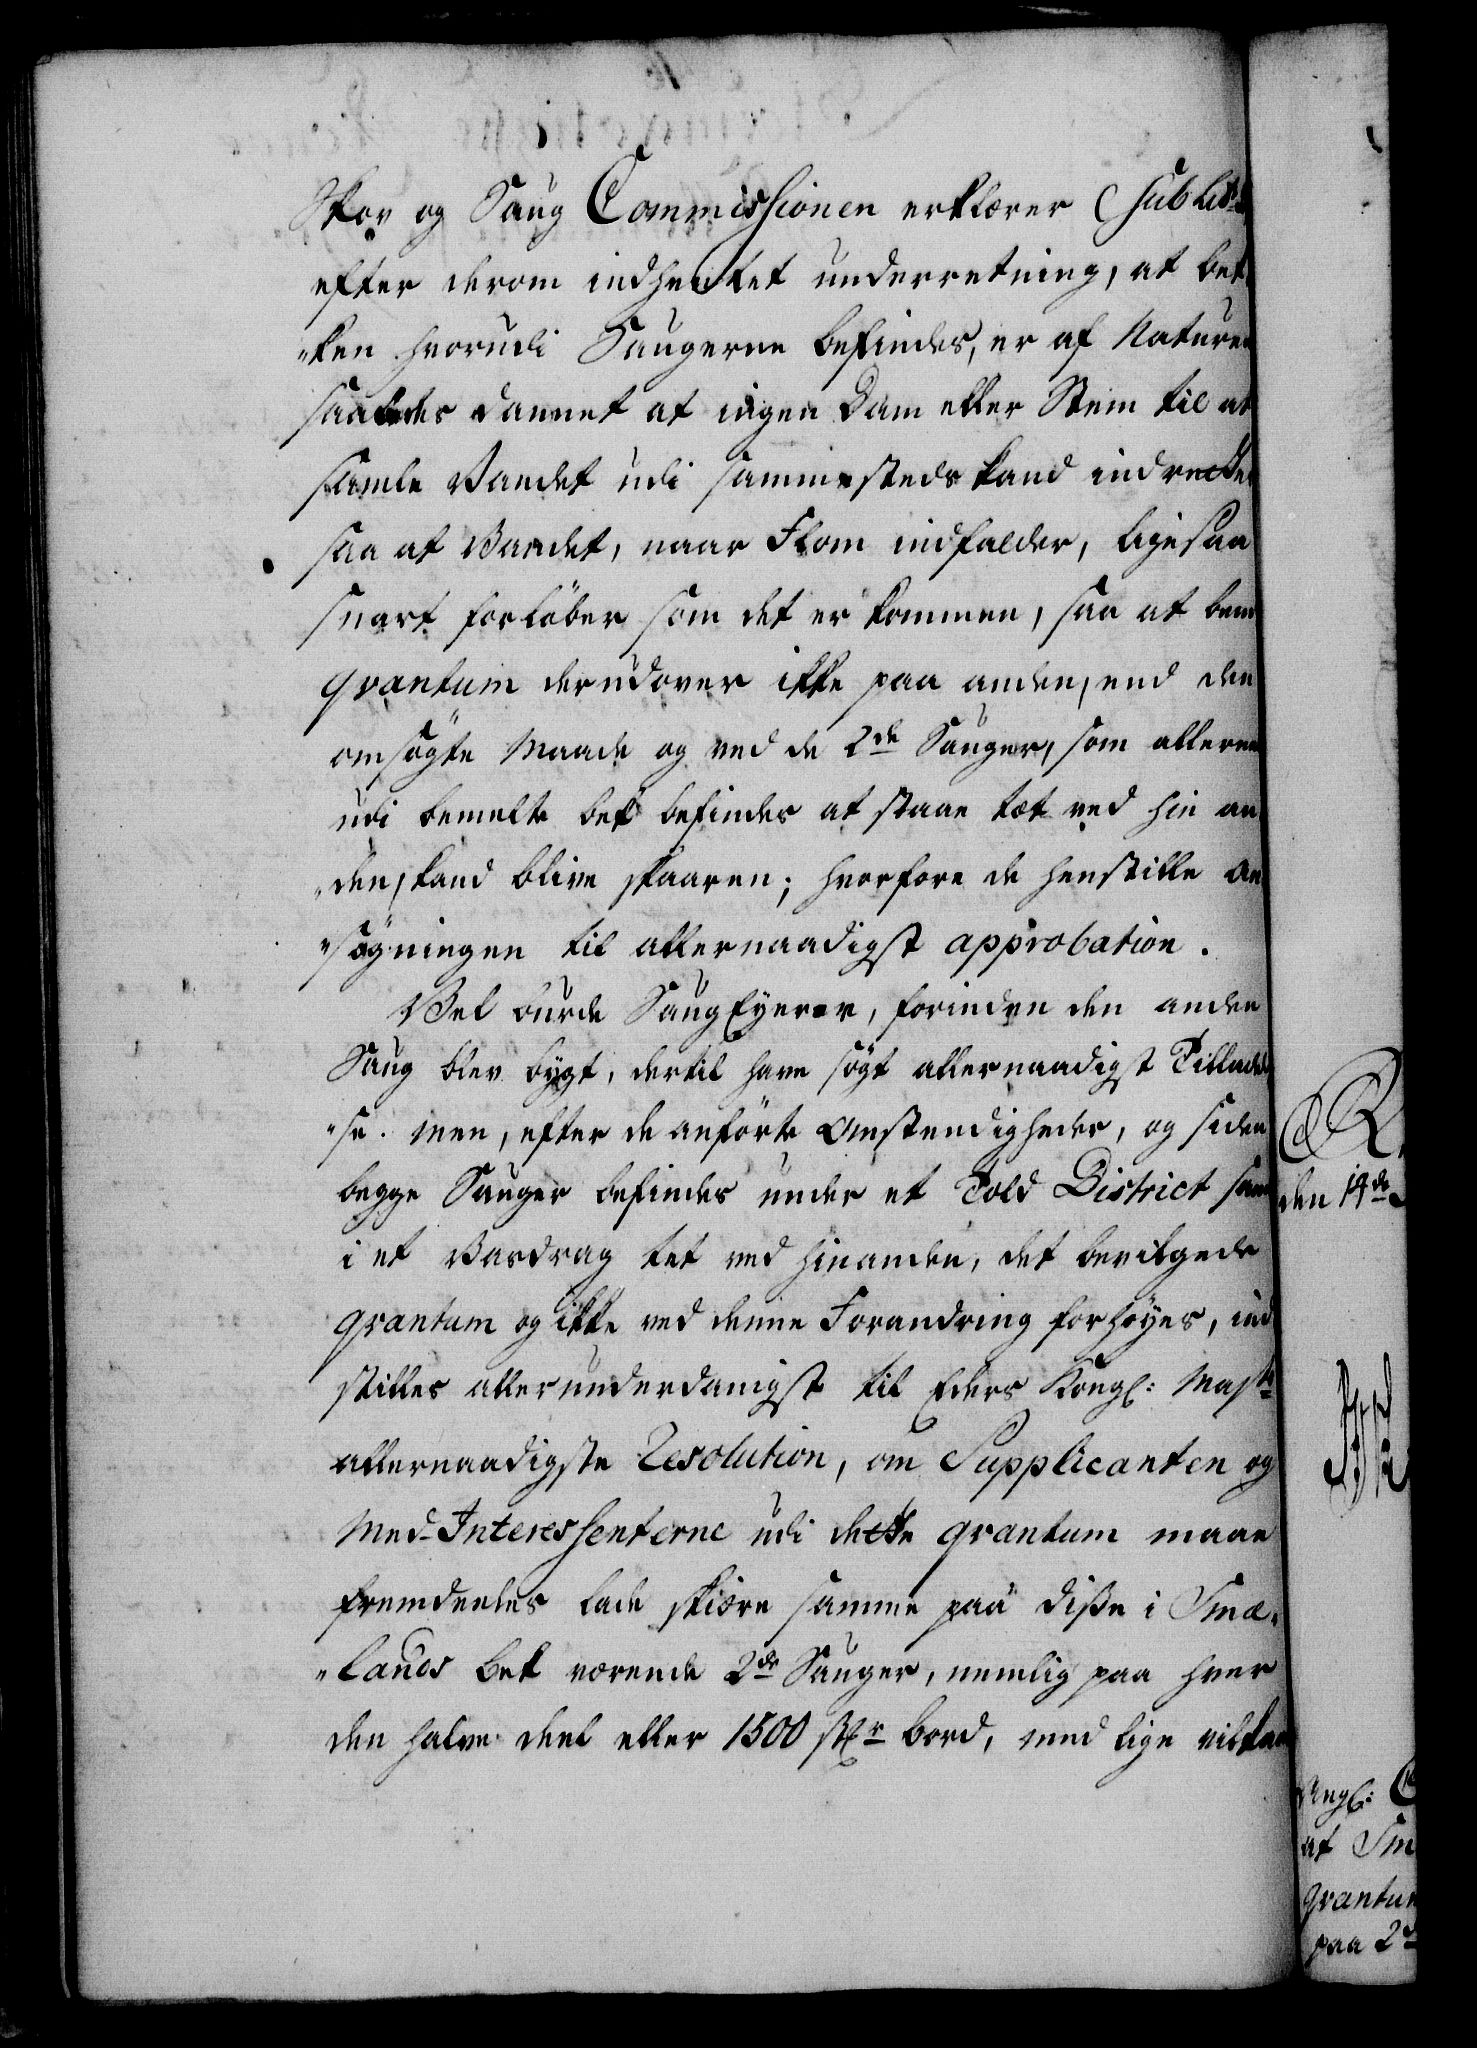 Skov og Saug Commissionen erklærer sub Lit:
efter derom indhentet underretning, at bek-
"ken hvorudi Saugerne befindes, er af Naturen
saaledes dannet at ingen Dam eller Stem til at
samle Vandet udi sammesteds kand indrettes
saa at Vandet, naar Flom indfalder, ligesaa
snart forløber som det er kommen, saa at bem
qvantum derudover ikke paa anden, end den
omsøgte Maade og ved de 2de Sauger, som allerede
udi bemelte bek befindes at staae tæt ved hin an-
"den, kand blive skaaren; hvorfore de henstille an-
"søgningen til allernaadigst approbation.
Vel burde SaugEyeren, forinden den anden
Saug blev bygt, dertil have søgt allernaadigst Tilladel-
"se. men, efter de anførte Omstendigheder, og siden
begge Sauger befindes under et Told District samt
i et Vasdrag tet ved hinanden, det bevilgede
qvantum og ikke ved denne Forandring forhøyes, ind-
stilles allerunderdanigst til Eders Kongl: Maysts
allernaadigste Resolution, om Supplicanten og
Med-Interessenterne udi dette qvantum maae
fremdeeles lade skiære samme paa disse i Smæ-
"lands bek værende 2de Sauger, nemlig paa hver
den halve deel eller 1500 stkr bord, med lige vilkaar
den 14de
Angl:
at Sm
qvantum
paa 2